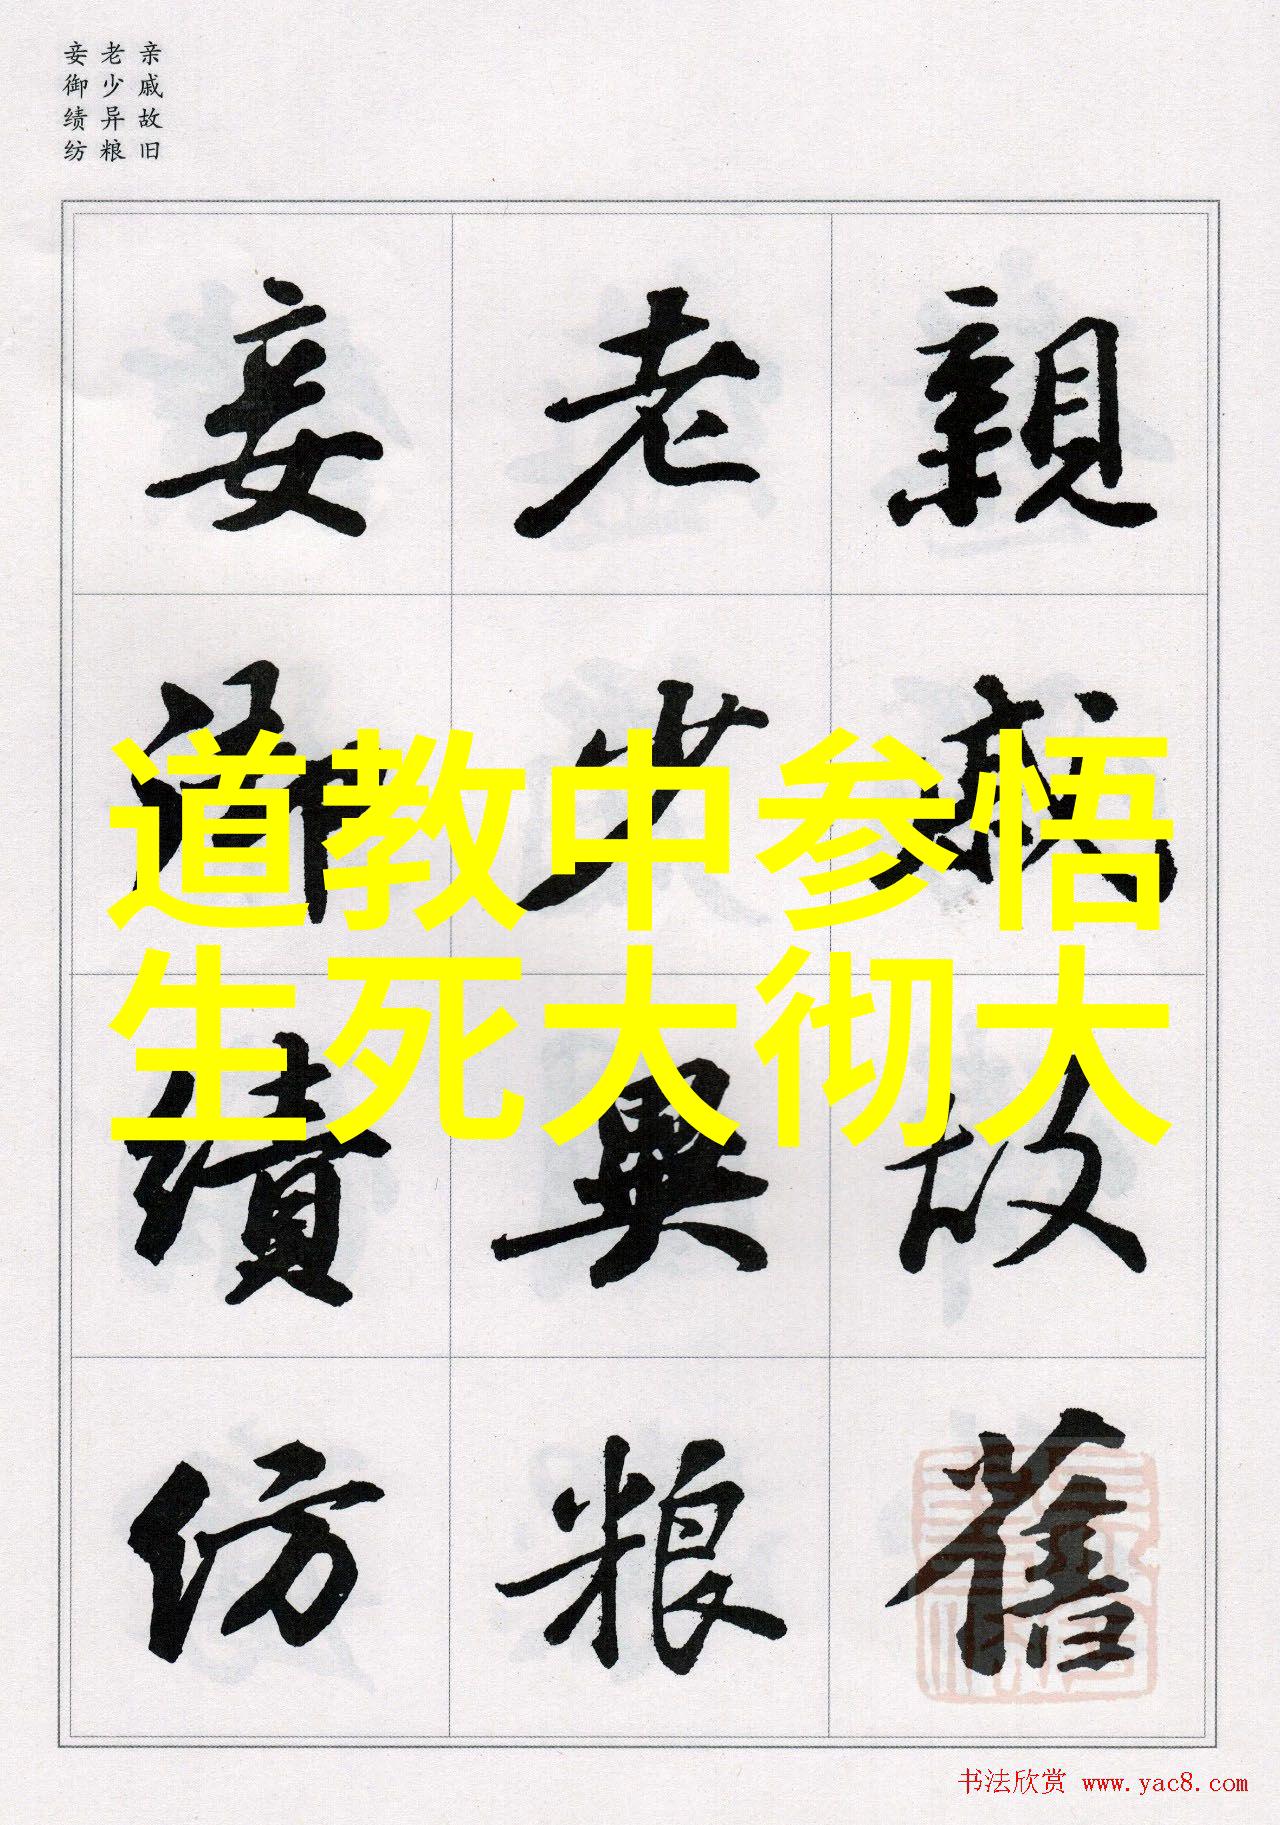 亲戚故旧
老少异粮
妾御绩纺
親戚故舊
老少異粮
妾御績紡
道教中参悟
生死大彻大
书法欣赏 www.yac8.com